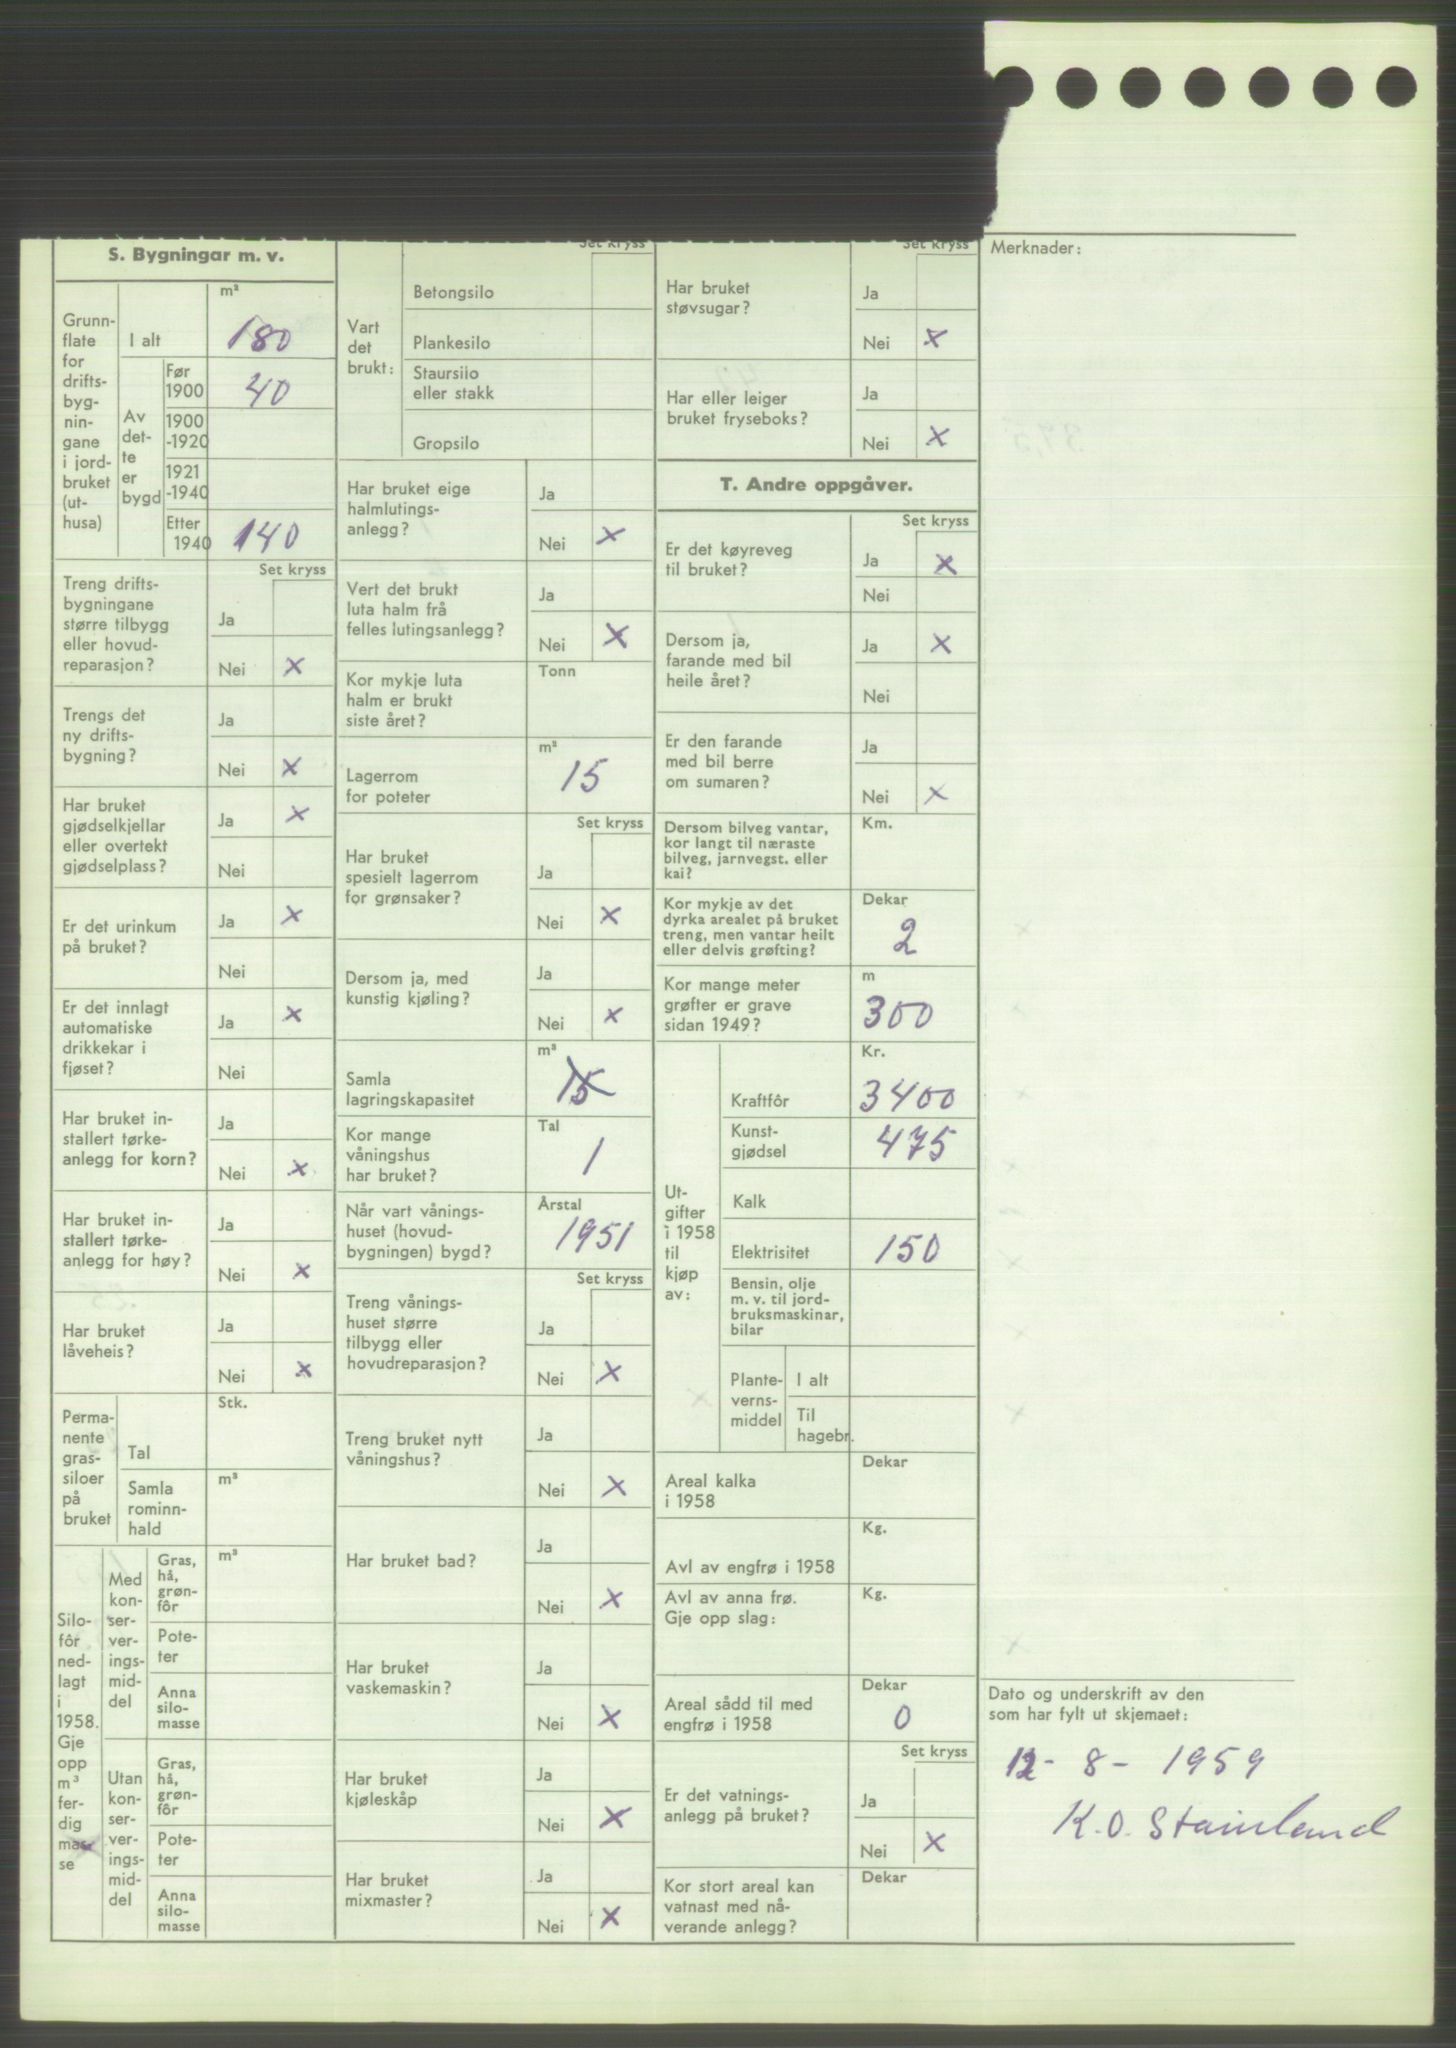 S. Bygningar m. v.
Grunn-
flate
for
drifts-
byg-
nin-
gane
i jord-
bruket
(ut-
husa)
m²
I alt 180
Av
det-
te
er
bygd
Før
1900 40
1900
-1920
1921
-1940
Etter
1940 140
Set kryss
Treng drifts-
bygningane
større tilbygg
eller hovud-
reparasjon?
Ja
Nei x
Trengs det
ny drifts-
bygning?
Ja
Nei x
Har bruket
gjødselkjellar
eller overtekt
gjødselplass?
Ja x
Nei
Er det urinkum
på bruket?
Ja x
Nei
Er det innlagt
automatiske
drikkekar i
fjøset?
Ja x
Nei
Har bruket in-
stallert tørke-
anlegg for korn?
Ja
Nei x
Har bruket in-
stallert tørke-
anlegg for høy?
Ja
Nei x
Har bruket
låveheis?
Ja
Nei x
Perma-
nente
gras-
siloer
på
bruket
Stk.
Tal
m³
Samla
rominn-
hald
Silo-
fôr
ned-
lagt
i
1958.
Gje
opp
m³
fer-
dig
mas-
se
x
Med
kon-
ser-
ver-
ings-
mid-
del
m³
Gras,
hå,
grøn-
fôr
Pote-
ter
Anna
silo-
masse
Utan
kon-
ser-
ver-
ings-
mid-
del
Gras,
hå,
grøn-
fôr
Pote-
ter
Anna
silo-
masse
Set kryss
Vart
det
brukt:
Betongsilo
Plankesilo
Staursilo
eller stakk
Gropsilo
Har bruket eige
halmlutings-
anlegg?
Ja
Nei x
Vert det brukt
luta halm frå
felles lutingsanlegg?
Ja
Nei x
Kor mykje luta
halm er brukt
siste året?
Tonn
Lagerrom
for poteter
m³
15
Set kryss
Har bruket
spesielt lagerrom
for grønsaker?
Ja
Nei x
Dersom ja, med
kunstig kjøling?
Ja
Nei x
Samla
lagringskapasitet
m³
15
Kor mange
våningshus
har bruket?
Tal
1
Når vart vånings-
huset (hovud-
bygningen) bygd?
Årstal
1951
Set kryss
Treng vånings-
huset større
tilbygg eller
hovudreparasjon?
Ja
Nei x
Treng bruket nytt
våningshus?
Ja
Nei x
Har bruket bad?
Ja
Nei x
Har bruket
vaskemaskin?
Ja
Nei x
Har bruket
kjøleskåp
Ja
Nei x
Har bruket
mixmaster?
Ja
Nei x
Set kryss
Har bruket
støvsugar?
Ja
Nei x
Har eller leiger
bruket fryseboks?
Ja
Nei x
T. Andre oppgåver.
Set kryss
Er det køyreveg
til bruket?
Ja x
Nei
Dersom ja,
farande med bil
heile året?
Ja x
Nei
Er den farande
med bil berre
om sumaren?
Ja
Nei x
Dersom bilveg vantar,
kor langt til næraste
bilveg, jarnvegst. eller
kai?
Km.
Kor mykje av det
dyrka arealet på bruket
treng, men vantar heilt
eller delvis grøfting?
Dekar
2
Kor mange meter
grøfter er grave
sidan 1949?
m
300
Ut-
gifter
i 1958
til
kjøp
av:
Kr.
Kraftfôr 3400
Kunst-
gjødsel 475
Kalk
Elektrisitet 150
Bensin, olje
m. v. til jord-
bruksmaskinar,
bilar
Plante-
verns-
middel
I alt
Til
hagebr.
Areal kalka
i 1958
Dekar
Avl av engfrø i 1958
Kg.
Avl av anna frø.
Gje opp slag:
Kg.
Areal sådd til med
engfrø i 1958
Dekar
0
Set kryss
Er det vatnings-
anlegg på bruket?
Ja
Nei x
Kor stort areal kan
vatnast med nå-
verande anlegg?
Dekar
Merknader:
Dato og underskrift av den
som har fylt ut skjemaet:
12- 8- 1959
K. O. Stainland